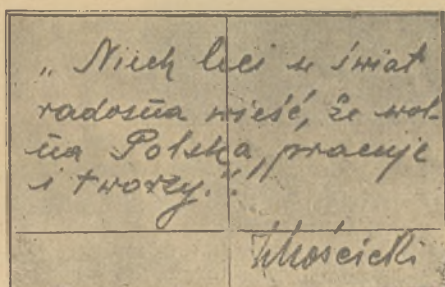 „Niech leci w świat
radosna wieść, że wol-
na Polska pracuje
i tworzy."
IMościcki